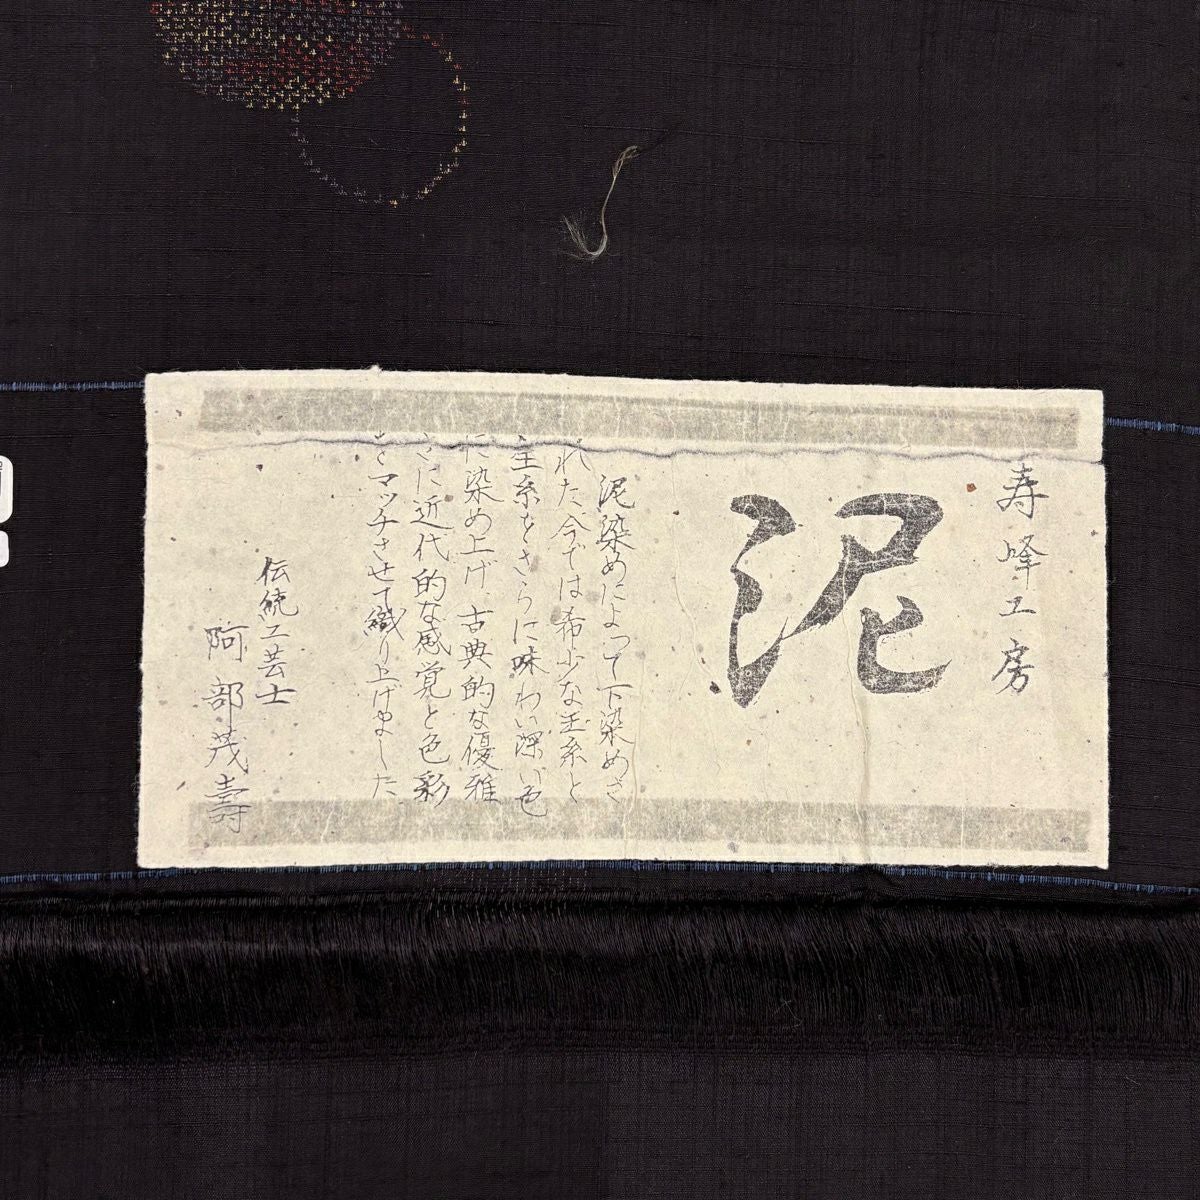 寿峰工房
泥
泥染めによって下染めさ
れた今では希少な玉糸と
生糸をさらに味わい深い色
に染め上げ、古典的な優雅
さに近代的な感覚と色彩
をマッチさせて織り上げました
伝統工芸士
阿部茂壽